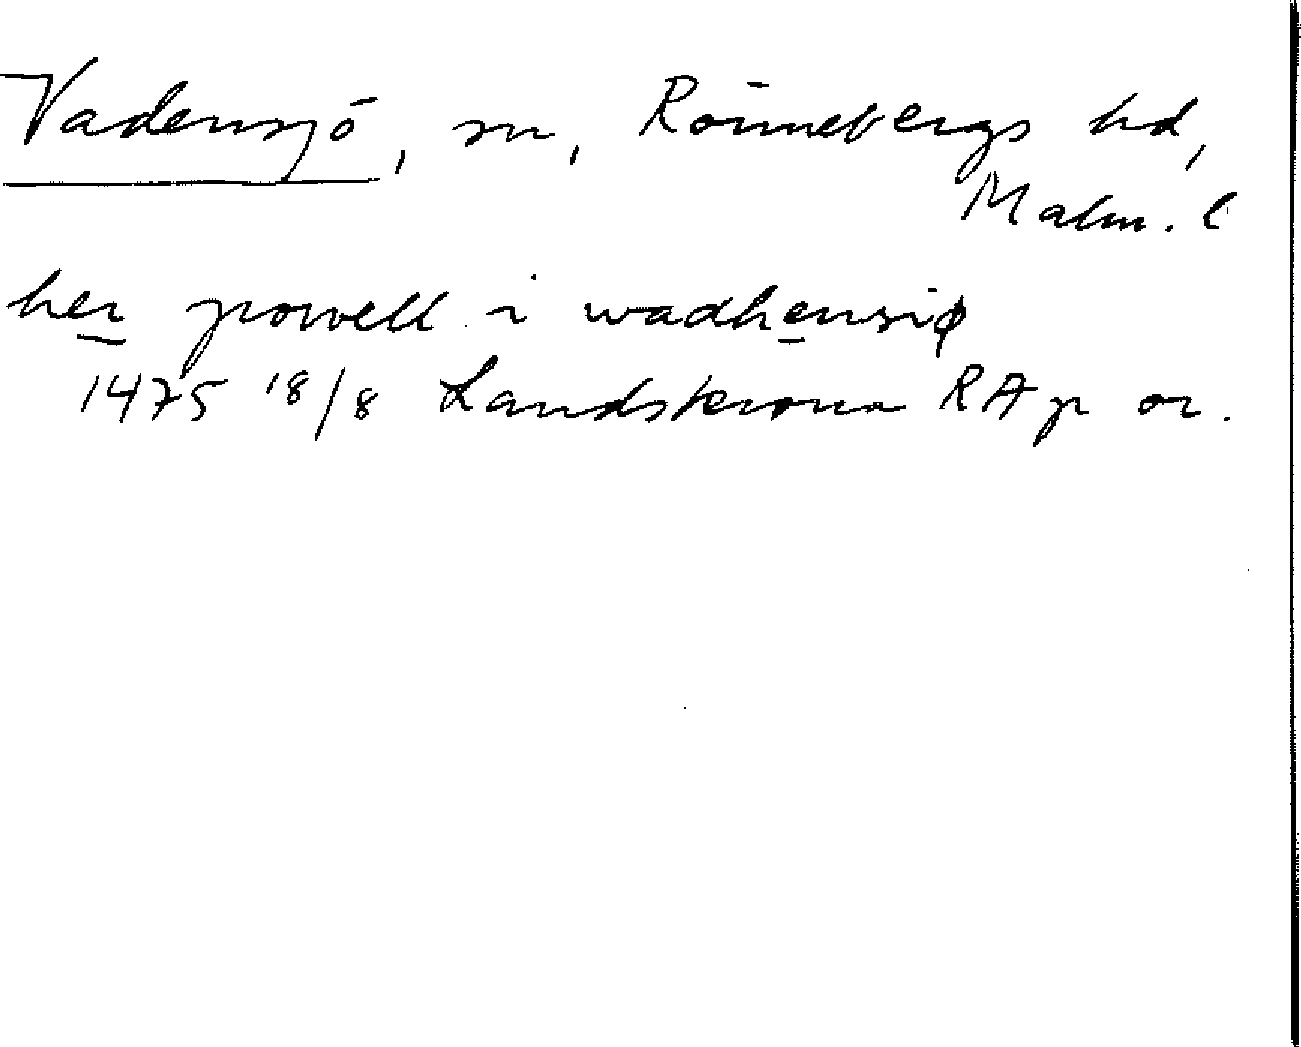 Vadensjö, sn, Rönnebergs hd,
Malm. l
her powell i wadhensiø
1475 18/8 Landskrona RA p or.